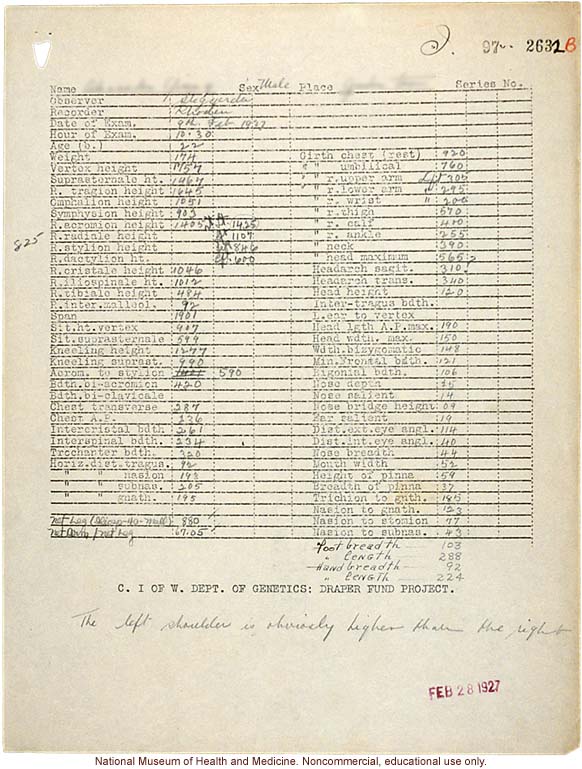 97 2631B
Name Sex Male Place Series No.
Observer Steggerda
Recorder
Date of Exam. 9th Feb 1927
Hour of Exam. 10.30
Age (b.) 22
Weight 174 Girth chest (rest) 920
Vertex height 1757 " " umbilical 760
Suprasternale ht. 1467 " r.upper arm Left 305
R. tragion height 1645 " r.lower arm " 295
Omphalion height 1051 " r. wrist " 200
Symphysion height 903 " r.thigh 570
R.acromion height 1405 1425 " r. calf 400
R.radiale height 1107 " r. ankle 255
825 R.stylion height 846 " neck 390
R.dactylion ht. 600 " head maximum 565
R.cristale height 1046 Headarch sagit. 310
R.iliospinale ht. 1012 Headarch trans. 340
R.tibiale height 484 Head height 120
R.inter.malleol. 92 Inter-tragus bdth.
Span 1901 L.ear to vertex
Sit.ht.vertex 907 Head lgth A.P.max. 190
Sit.suprasternale 599 Head wdth. max. 150
Kneeling height 1277 Wdth.bizygomatic 148
Kneeling suprast. 990 Min.Frontal bdth. 121
Acrom. to stylion 590 Bigonial bdth. 106
Bdth.bi-acromion 420 Nose depth 25
Bdth.bi-clavicale Nose salient 14
Chest transverse 287 Nose bridge height 09
Chest A.P. 236 Ear salient 19
Intercristal bdth 261 Dist.ext.eye angl. 114
Interspinal bdth. 234 Dist.int.eye angl. 40
Trochanter bdth. 320 Nose breadth 44
Horiz.dist.tragus. 92 Mouth width 52
" " nasion 193 Height of pinna 59
" " subnas. 205 Breadth of pinna 37
" " gnath. 195 Trichion to gnth. 195
Nasion to gnath. 123
Net Leg 880 Nasion to stomion 77
Net / Net Leg 67.05 Nasion to subnas. 43
Foot breadth 103
" LENGTH 288
Hand breadth 92
" LENGTH 224
C. I OF W. DEPT. OF GENETICS: DRAPER FUND PROJECT.
The left shoulder is obviously higher than the right
FEB 28 1927
National Museum of Health and Medicine. Noncommercial, educational use only.